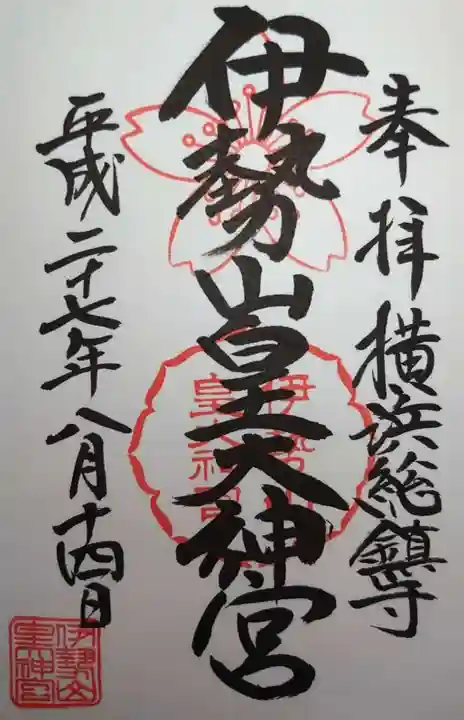 奉拝 横浜総鎮守
伊勢山皇大神宮
平成二十七年八月十四日
伊勢山
皇大神宮
伊勢山
皇神宮